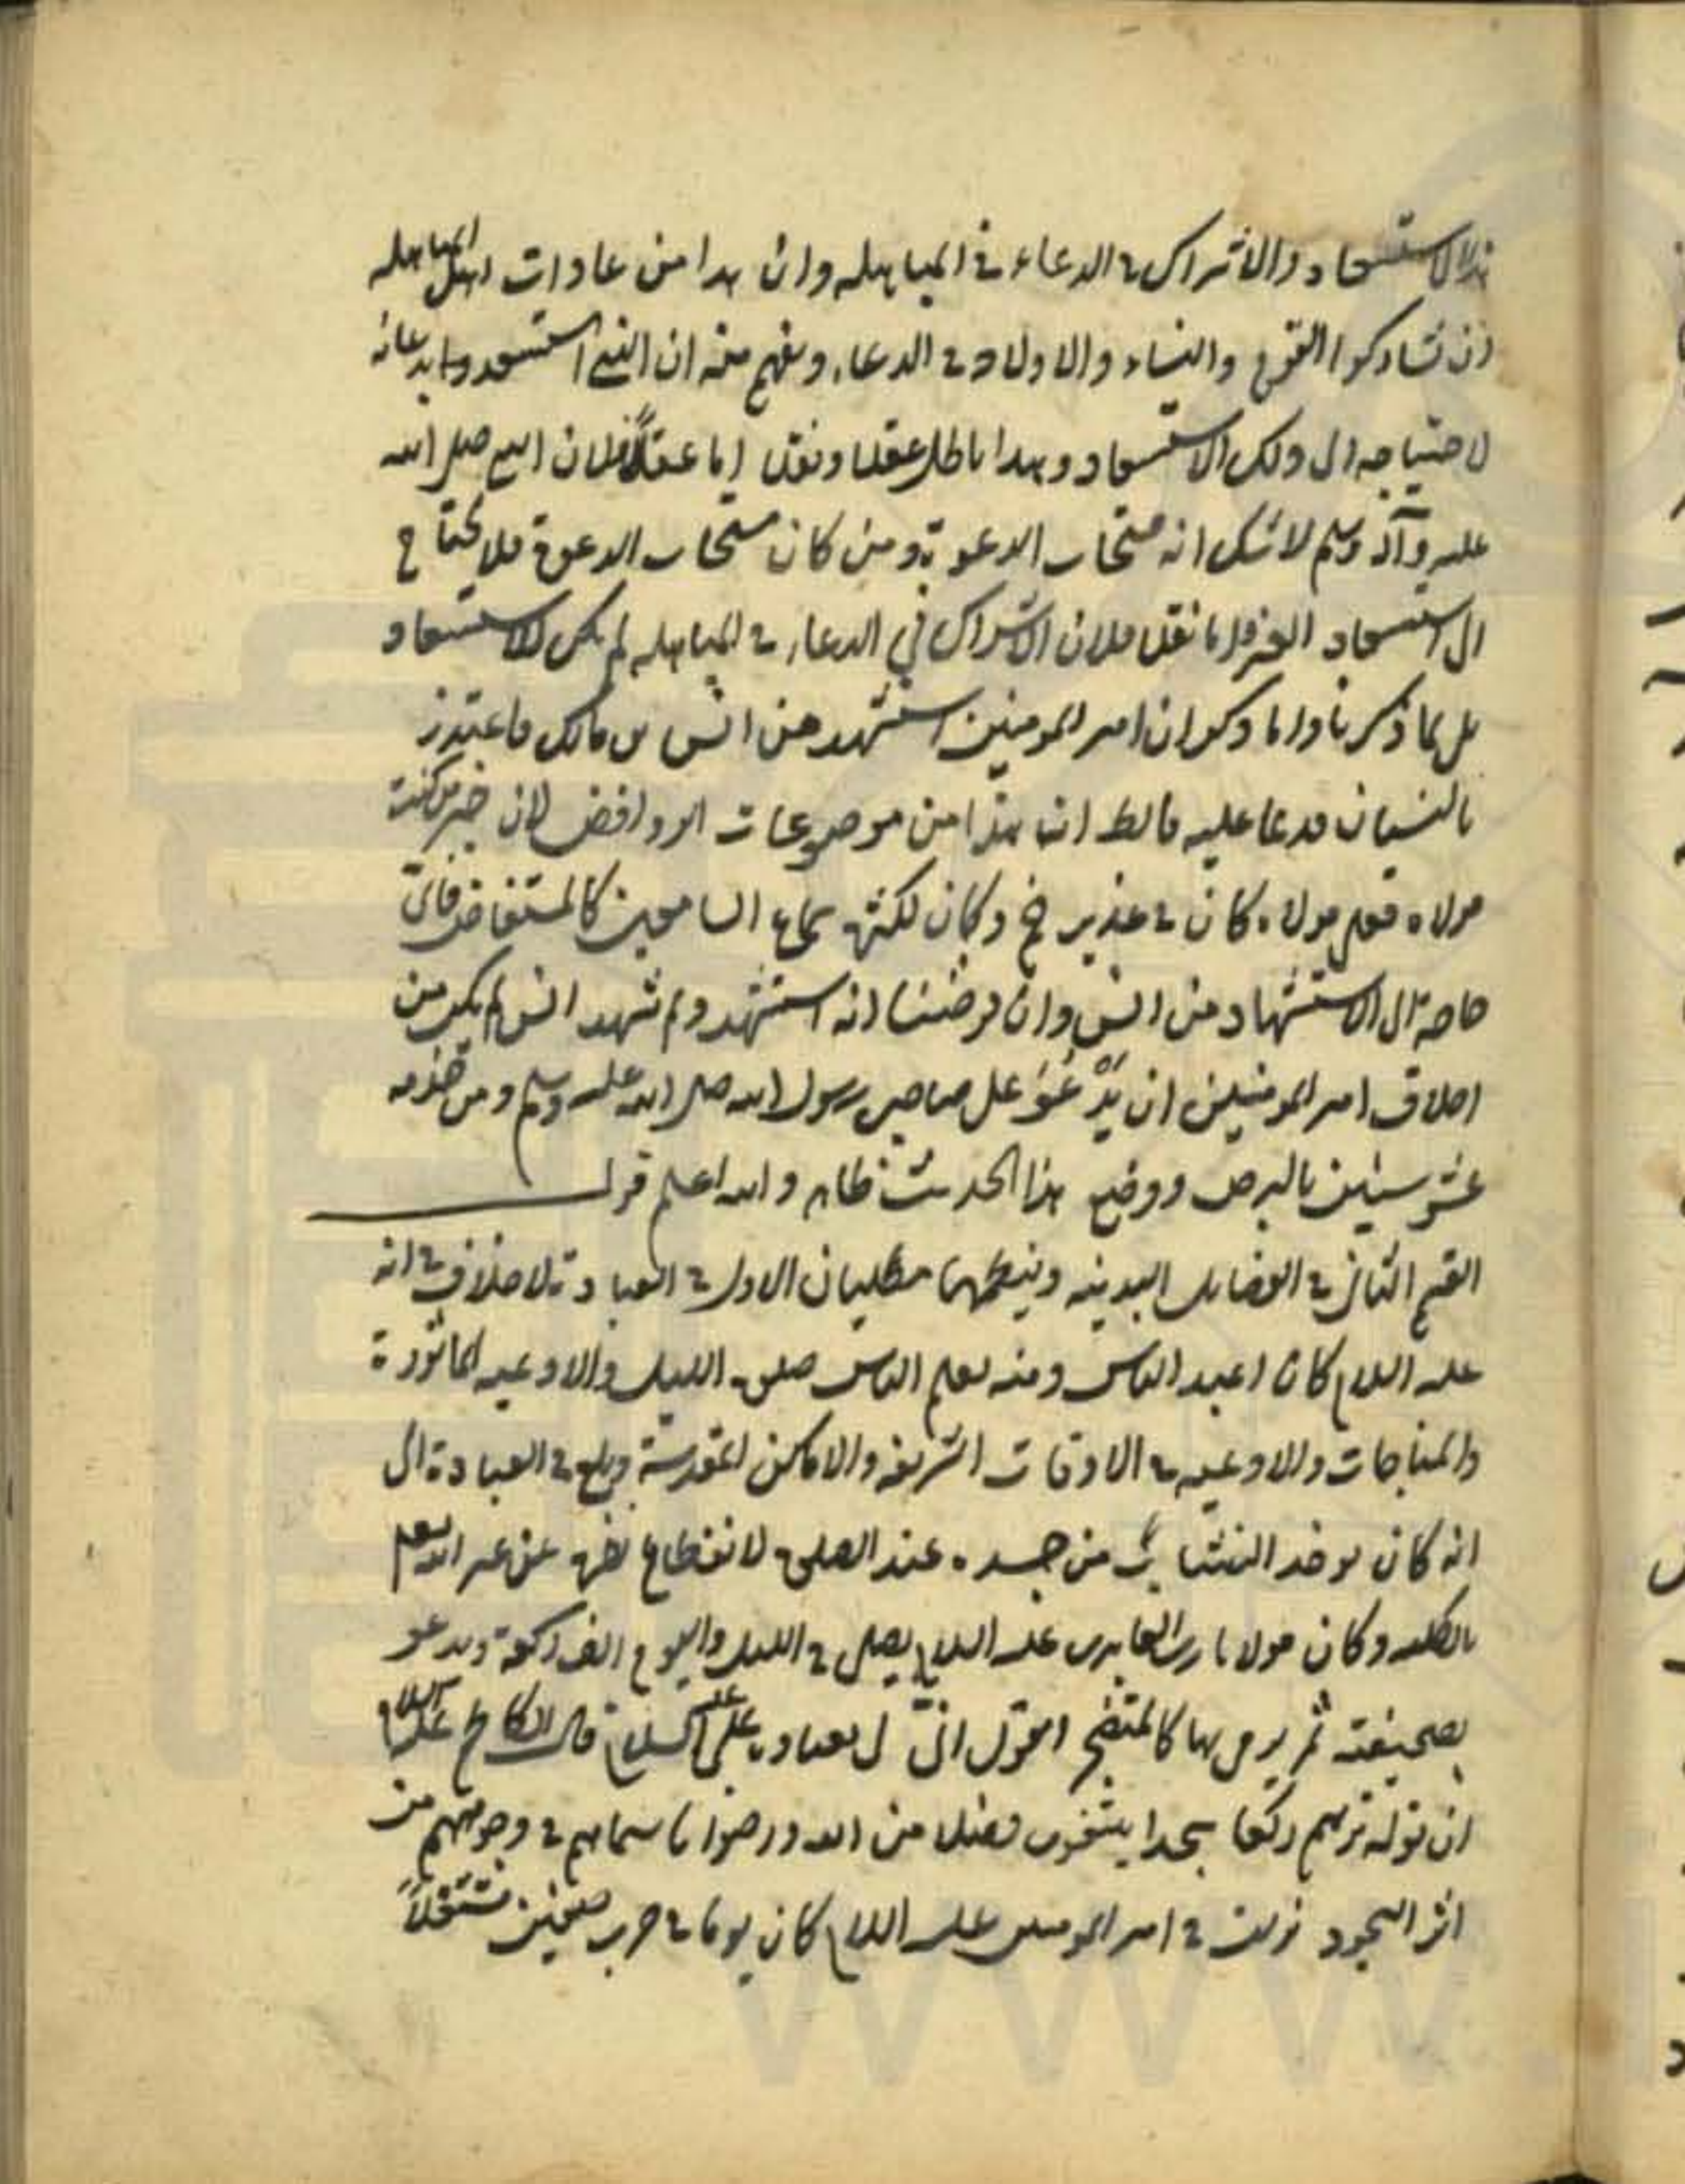 هذا الاستسعاد والاشراك في الدعاء في المباهله وان هذا من عادات اهل المباهله
ان تشاركوا القوم والنساء والاولاد في الدعاء ويفهم منه ان النبي استسعد وا بدعائه
لاحتياجه الى ذلك الاستسعاد وهذا باطل عقلا ونقلا اما عقلاً فلان النبي صلى الله
عليه وآله وسلم لا شك انه مستجاب الدعوة ومن كان مستجاب الدعوة فلا يحتاج
الى استسعاد الغير واما نقلا فلان الاشراك في الدعاء في المباهله لم يكن للاستسعاد
بل لما ذكرنا واما ذكر ان امير المومنين استشهد من انس بن مالك فاعتذر
بالنسيان فدعا عليه فالظ ان هذا من موضوعات الروافض لان خبر من كنت
مولاه فعلي مولاه كان في غدير خم وكان لكثرة سماع السامعين كالمستفاض فاي
حاجة الى الاستشهاد من انس وان فرضنا انه استشهد ولم يشهد انس لم يكن من
اخلاق امير المومنين ان يدعو على صاحب رسول الله صلى الله عليه وسلم ومن خدمه
عشر سنين بالبرص ووضع هذا الحديث ظاهر والله اعلم قوله
القسم الثاني في الفضايل البدنيه وينظمها مطلبان الاول في العبادة لا خلاف في انه
عليه السلام كان اعبد الناس ومنه تعلم الناس صلوة الليل والادعيه الماثورة
والمناجات والادعيه في الاوقات الشريفه والاماكن المقدسة وبلغ في العبادة الى
انه كان يوخذ النشاب من جسده عند الصلوة لانقطاع نظره عن غير الله تعالى
بالكليه وكان مولانا زين العابدين عليه السلام يصلي في الليل واليوم الف ركعة ويدعو
بصحيفته ثم يرمي بها كالمتضجر ويقول انى لي بعبادة علي عليه السلام قال الكاظم عليه السلام
ان قوله تريهم ركعا سجدا يبتغون فضلا من الله ورضوانا سيماهم في وجوههم من
اثر السجود نزلت في امير المومنين عليه السلام كان يوما في حرب صفين مشتغلاً